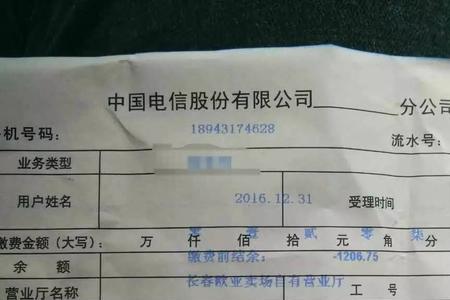 中国电信股份有限公司 分公司
机号码: 18943174628 流水号:
业务类型
用户姓名 2016.12.31 受理时间
零 壹 贰 零 柒
缴费金额(大写): 万 仟 佰 拾 元 角 分
余 额 缴费前结余: -1206.75
营业厅名称 长春欧亚卖场自有营业厅 工 号